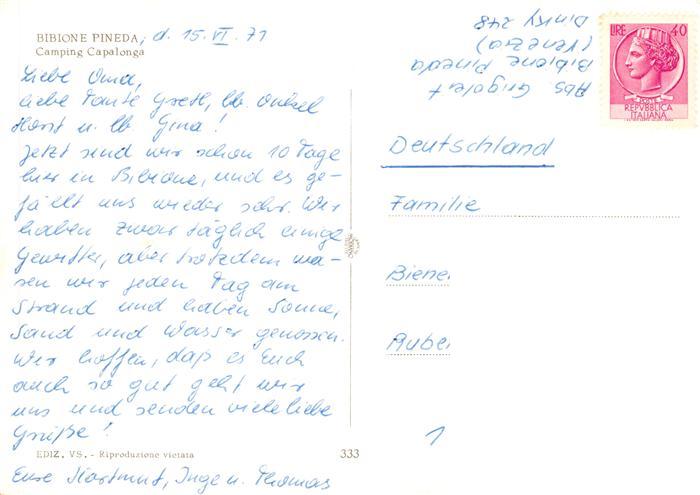 BIBIONE PINEDA, d. 15. VI. 71
Camping Capalonga
Liebe Oma,
liebe Tante Gretl, lb. Onkel
Horst u. lb Gina!
Jetzt sind wir schon 10 Tage
hier in Bibione, und es ge-
fällt uns wieder sehr. Wir
haben zwar täglich einige
Gewitter, aber trotzdem wa-
ren wir jeden Tag am
Strand und haben Sonne,
Sand und Wasser genossen.
Wir hoffen, daß es Euch
auch so gut geht wie
uns und senden viele liebe
Grüße!
EDIZ. VS. - Riproduzione vietata
333
Eure Hartmut, Inge u. Thomas
Abs Grigolat
Bibione Pineda
(Venezia)
Dinky 248
LIRE 40
POSTE
REPVBBLICA
ITALIANA
Deutschland
Familie
Biene
Rube
1